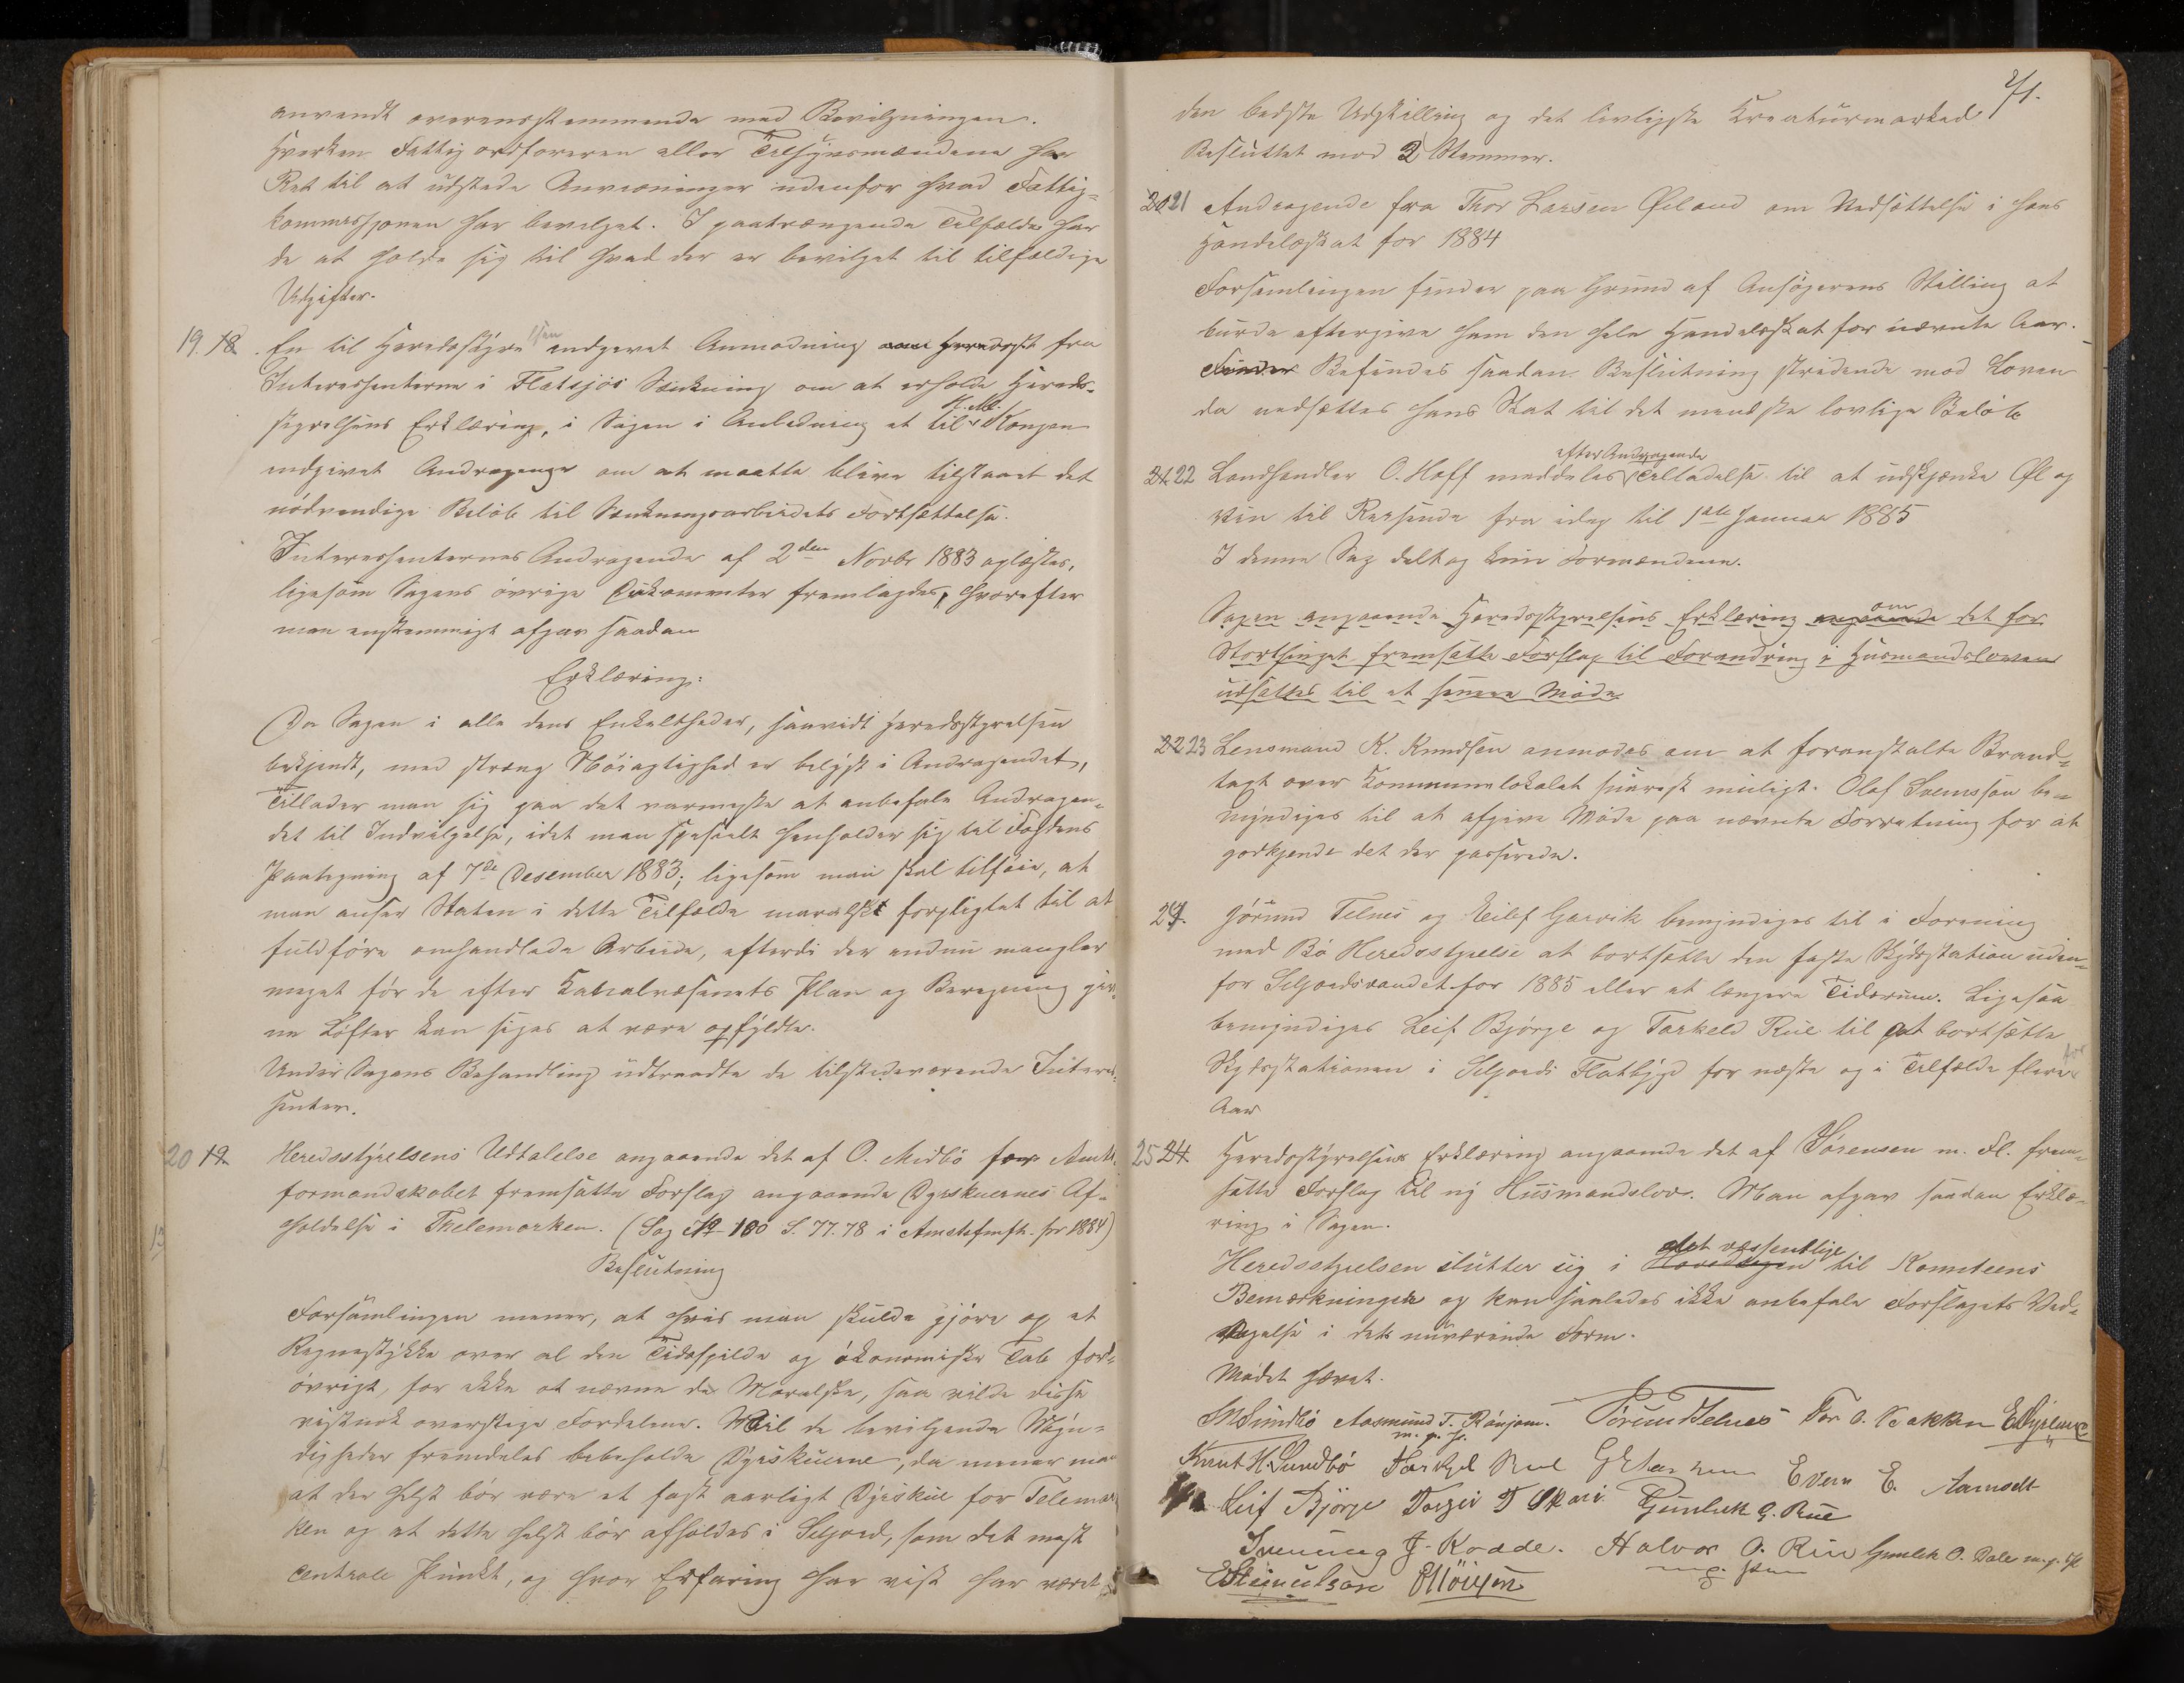 anvendt overensstemmende med Bevilgningen.
Hverken Fattigordføreren eller Tilsynsmændene har
Ret til at udstede Anvisninger udenfor hvad Fattig=
kommissjonen har bevilget. I paatrængende Tilfælde har
de at holde sig til hvad der er bevilget til tilfældige
Udgifter.
19. 18. En til Heredsstyrelsen indgivet Anmodning fra
Interessenterne i Flatsjøs Sænkning om at erholde Hereds-
styrelsens Erklæring, i Sagen i Anledning et til H. M. Kongen
indgivet Andragende om at maatte blive tilstaaet det
nødvendige Beløb til Sænkningsarbeidets Fortsættelse.
Interessenternes Andragende af 2den Novbr 1883 oplæstes,
ligesom Sagens øvrige Dokumenter fremlagdes, hvorefter
man enstemmigt afgav saadan
Erklæring:
Da Sagen i alle dens Enkeltheder, saavidt Heredsstyrelsen
bekjendt, med streng Nøiagtighed er belyst i Andragendet,
tillader man sig paa det varmeste at anbefale Andragen-
det til Indvilgelse, idet man spesielt henholder sig til Fogdens
Paategning af 7de Desember 1883; ligesom man skal tilføie, at
man anser Staten i dette Tilfælde moralskt forpligtet til at
fuldføre omhandlede Arbeide, efterdi der endnu mangler
meget før de efter Kanalvæsenets Plan og Beregning giv-
ne Løfter kan siges at være opfyldte.
Under Sagens Behandling udtraadte de tilstedeværende Interes-
senter.
20 19. Heredsstyrelsens Udtalelse angaaende det af O. Midbø for Amts-
formandskabet fremsatte Forslag angaaende Dyrskuernes Af-
holdelse i Thelemarken. (Sag No 100 S. 77.78 i Amtsfmsk. for 1884)
Beslutning
Forsamlingen mener, at hvis man skulde gjøre op et
Regnestykke over al den Tidsspilde og økonomiske Tab for-
øvrigt, for ikke at nævne det Moralske, saa vilde disse
vistnok overstige Fordelene. Vil de bevilgende Myn=
digheder fremdeles bibeholde Dyrskuerne, da mener man
at der helst bør være et fast aarligt Dyrskue for Telemar-
ken og at dette helst bør afholdes i Seljord, som det mest
centrale Punkt, og hvor Erfaring har vist har været
271.
den bedste Udstilling og det livligste Kreaturmarked
Besluttet mod 2 Stemmer.
20 21 Andragende fra Thor Larsen Øiland om Nedsættelse i hans
Handelsskat for 1884
Forsamlingen finder paa Grund af Ansøgerens Stilling at
burde eftergive ham den hele Handelsskat for nævnte Aar.
Finder Befindes saadan Beslutning stridende mod Loven
da nedsættes hans Skat til det mindste lovlige Beløb
21 22 Landhandler O. Hoff meddeles efter Andragende Tilladelse til at udskjænke Øl og
Vin til Reisende fra idag til 1ste Januar 1885
I denne Sag deltog kun Formændene.
Sagen angaaende Heredsstyrelsens Erklæring angaaende om det for
Storthinget fremsatte Forslag til Forandring i Husmandsloven
udsættes til et senere Møde
22 23 Lensmand K. Knudsen anmodes om at foranstalte Brand=
taxt over Kommunelokalet snarest muligt. Olaf Svensson be=
myndiges til at afgive Møde paa nævnte Forretning for at
godkjende det der passerede.
Jørund Telnes og Eilef Garvik bemyndiges til i Forening
med Bø Heredsstyrelse at bortsætte den faste Skydsstation uden-
for Seljordsvandet for 1885 eller et længere Tidsrum. Ligesaa
bemyndiges Leif Bjørge og Tarkeld Rue til at bortsætte
Skydsstationen i Seljords Flatbygd for næste og i Tilfælde for flere
Aar
25 24 Heredsstyrelsens Erklæring angaaende det af Sørensen m. Fl. frem-
satte Forslag til ny Husmandslov. Man afgav saadan Erklæ-
ring i Sagen.
Heredsstyrelsen slutter sig i Hovedsagen det væsentlige til Komiteens
Bemærkninger og kan saaledes ikke anbefale Forslagets Ved-
tagelse i dets nuværende Form.
Mødet hævet.
Sundbø Aasmund T. Jørund Telnes Tor O. Bakken
m. p. P.
Knut H. Sundbø Tarkjel Rue Even E. Aamodt
Leif Bjørge Torgei T Skori Gunleik G. Rue
J. Kodde. Halvor O. Rue Gunleik O. Dale m. p. P.